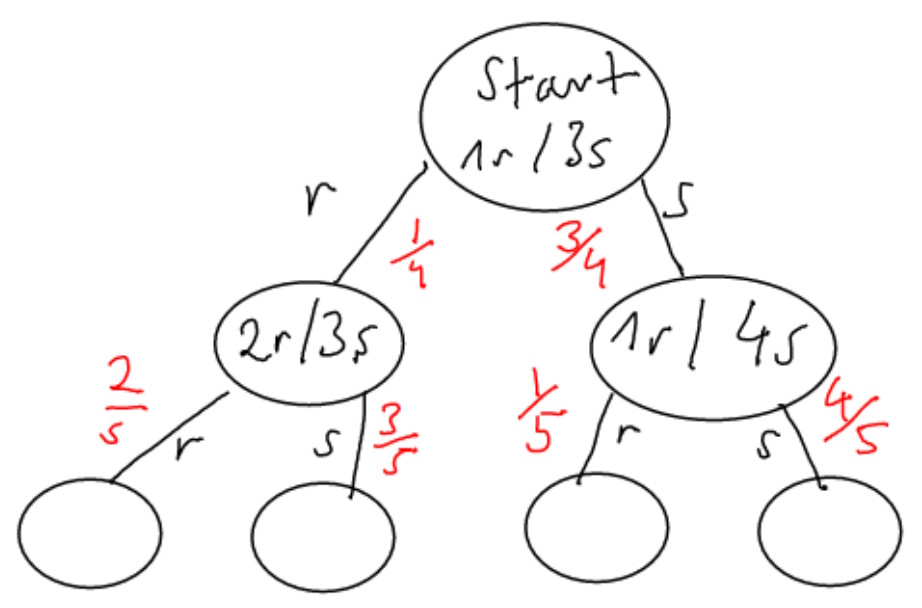 Start
1r/3s
r
s
1/4
3/4
2r/3s
1r/4s
2/5
r
s
3/5
1/5
r
s
4/5